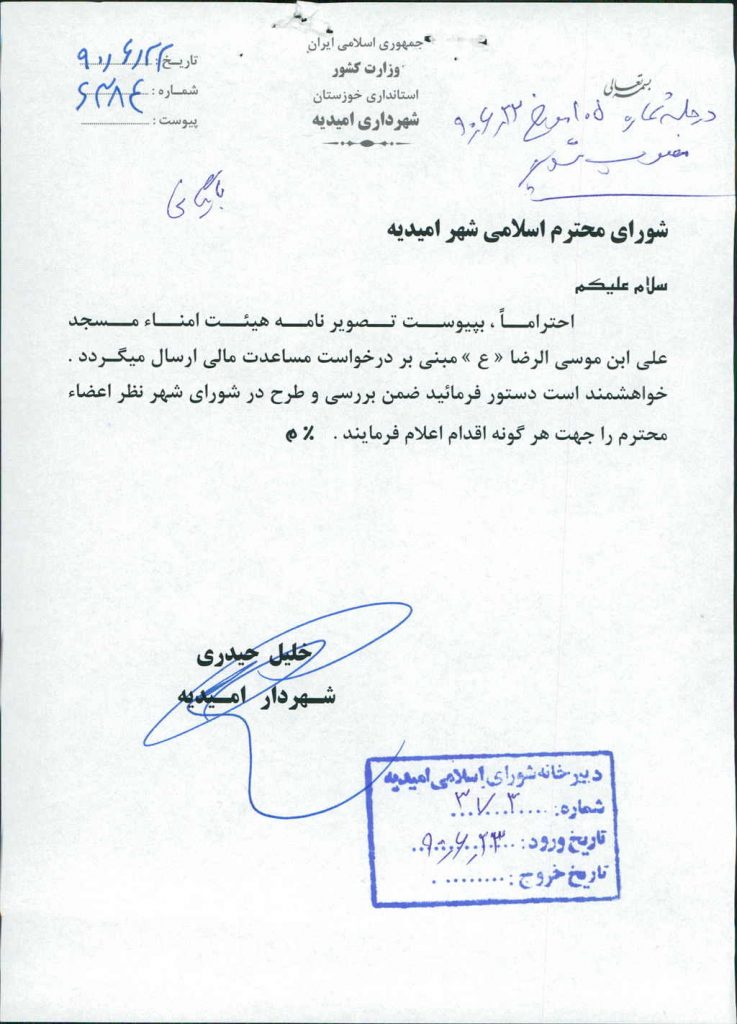 جمهوری اسلامی ایران
وزارت کشور
استانداری خوزستان
شهرداری امیدیه
تاریخ : ۹۰/۶/۲۲
شماره : ۶۳۸۴
پیوست :
بسمه تعالی
در جلسه شماره ۱۰۵ مورخ ۹۰/۶/۲۳
مصوب شد
بایگانی
شورای محترم اسلامی شهر امیدیه
سلام علیکم
احتراماً ، بپیوست تصویر نامه هیئت امناء مسجد
علی ابن موسی الرضا « ع » مبنی بر درخواست مساعدت مالی ارسال میگردد .
خواهشمند است دستور فرمائید ضمن بررسی و طرح در شورای شهر نظر اعضاء
محترم را جهت هر گونه اقدام اعلام فرمایند . ٪ م
خلیل حیدری
شهردار امیدیه
دبیرخانه شورای اسلامی امیدیه
شماره:
تاریخ ورود: ۹۰/۶/۲۳
تاریخ خروج: